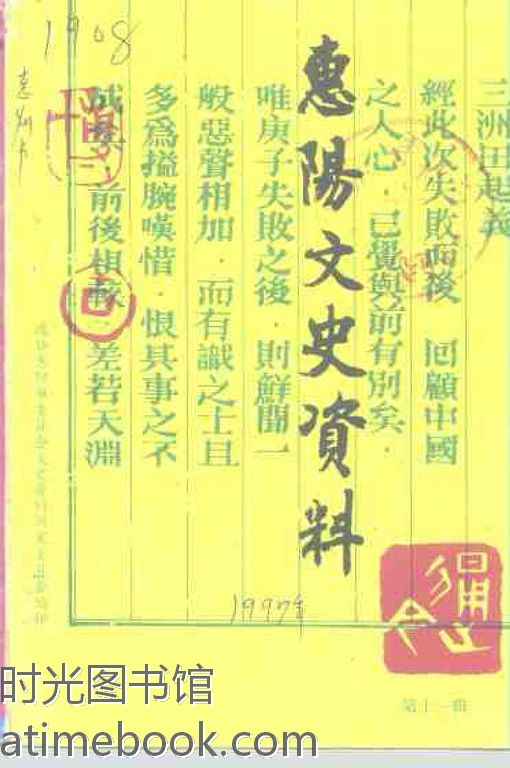 1908
惠陽文史資料
三洲田起義
經此次失敗而後 回顧中國
之人心．已覺與前有別矣．
唯庚子失敗之後．則鮮聞一
般惡聲相加．而有識之士且
多爲搤腕嘆惜．恨其事之不
成矣．前後相較．差若天淵
1997年
第十一辑
时光图书馆
atimebook.com